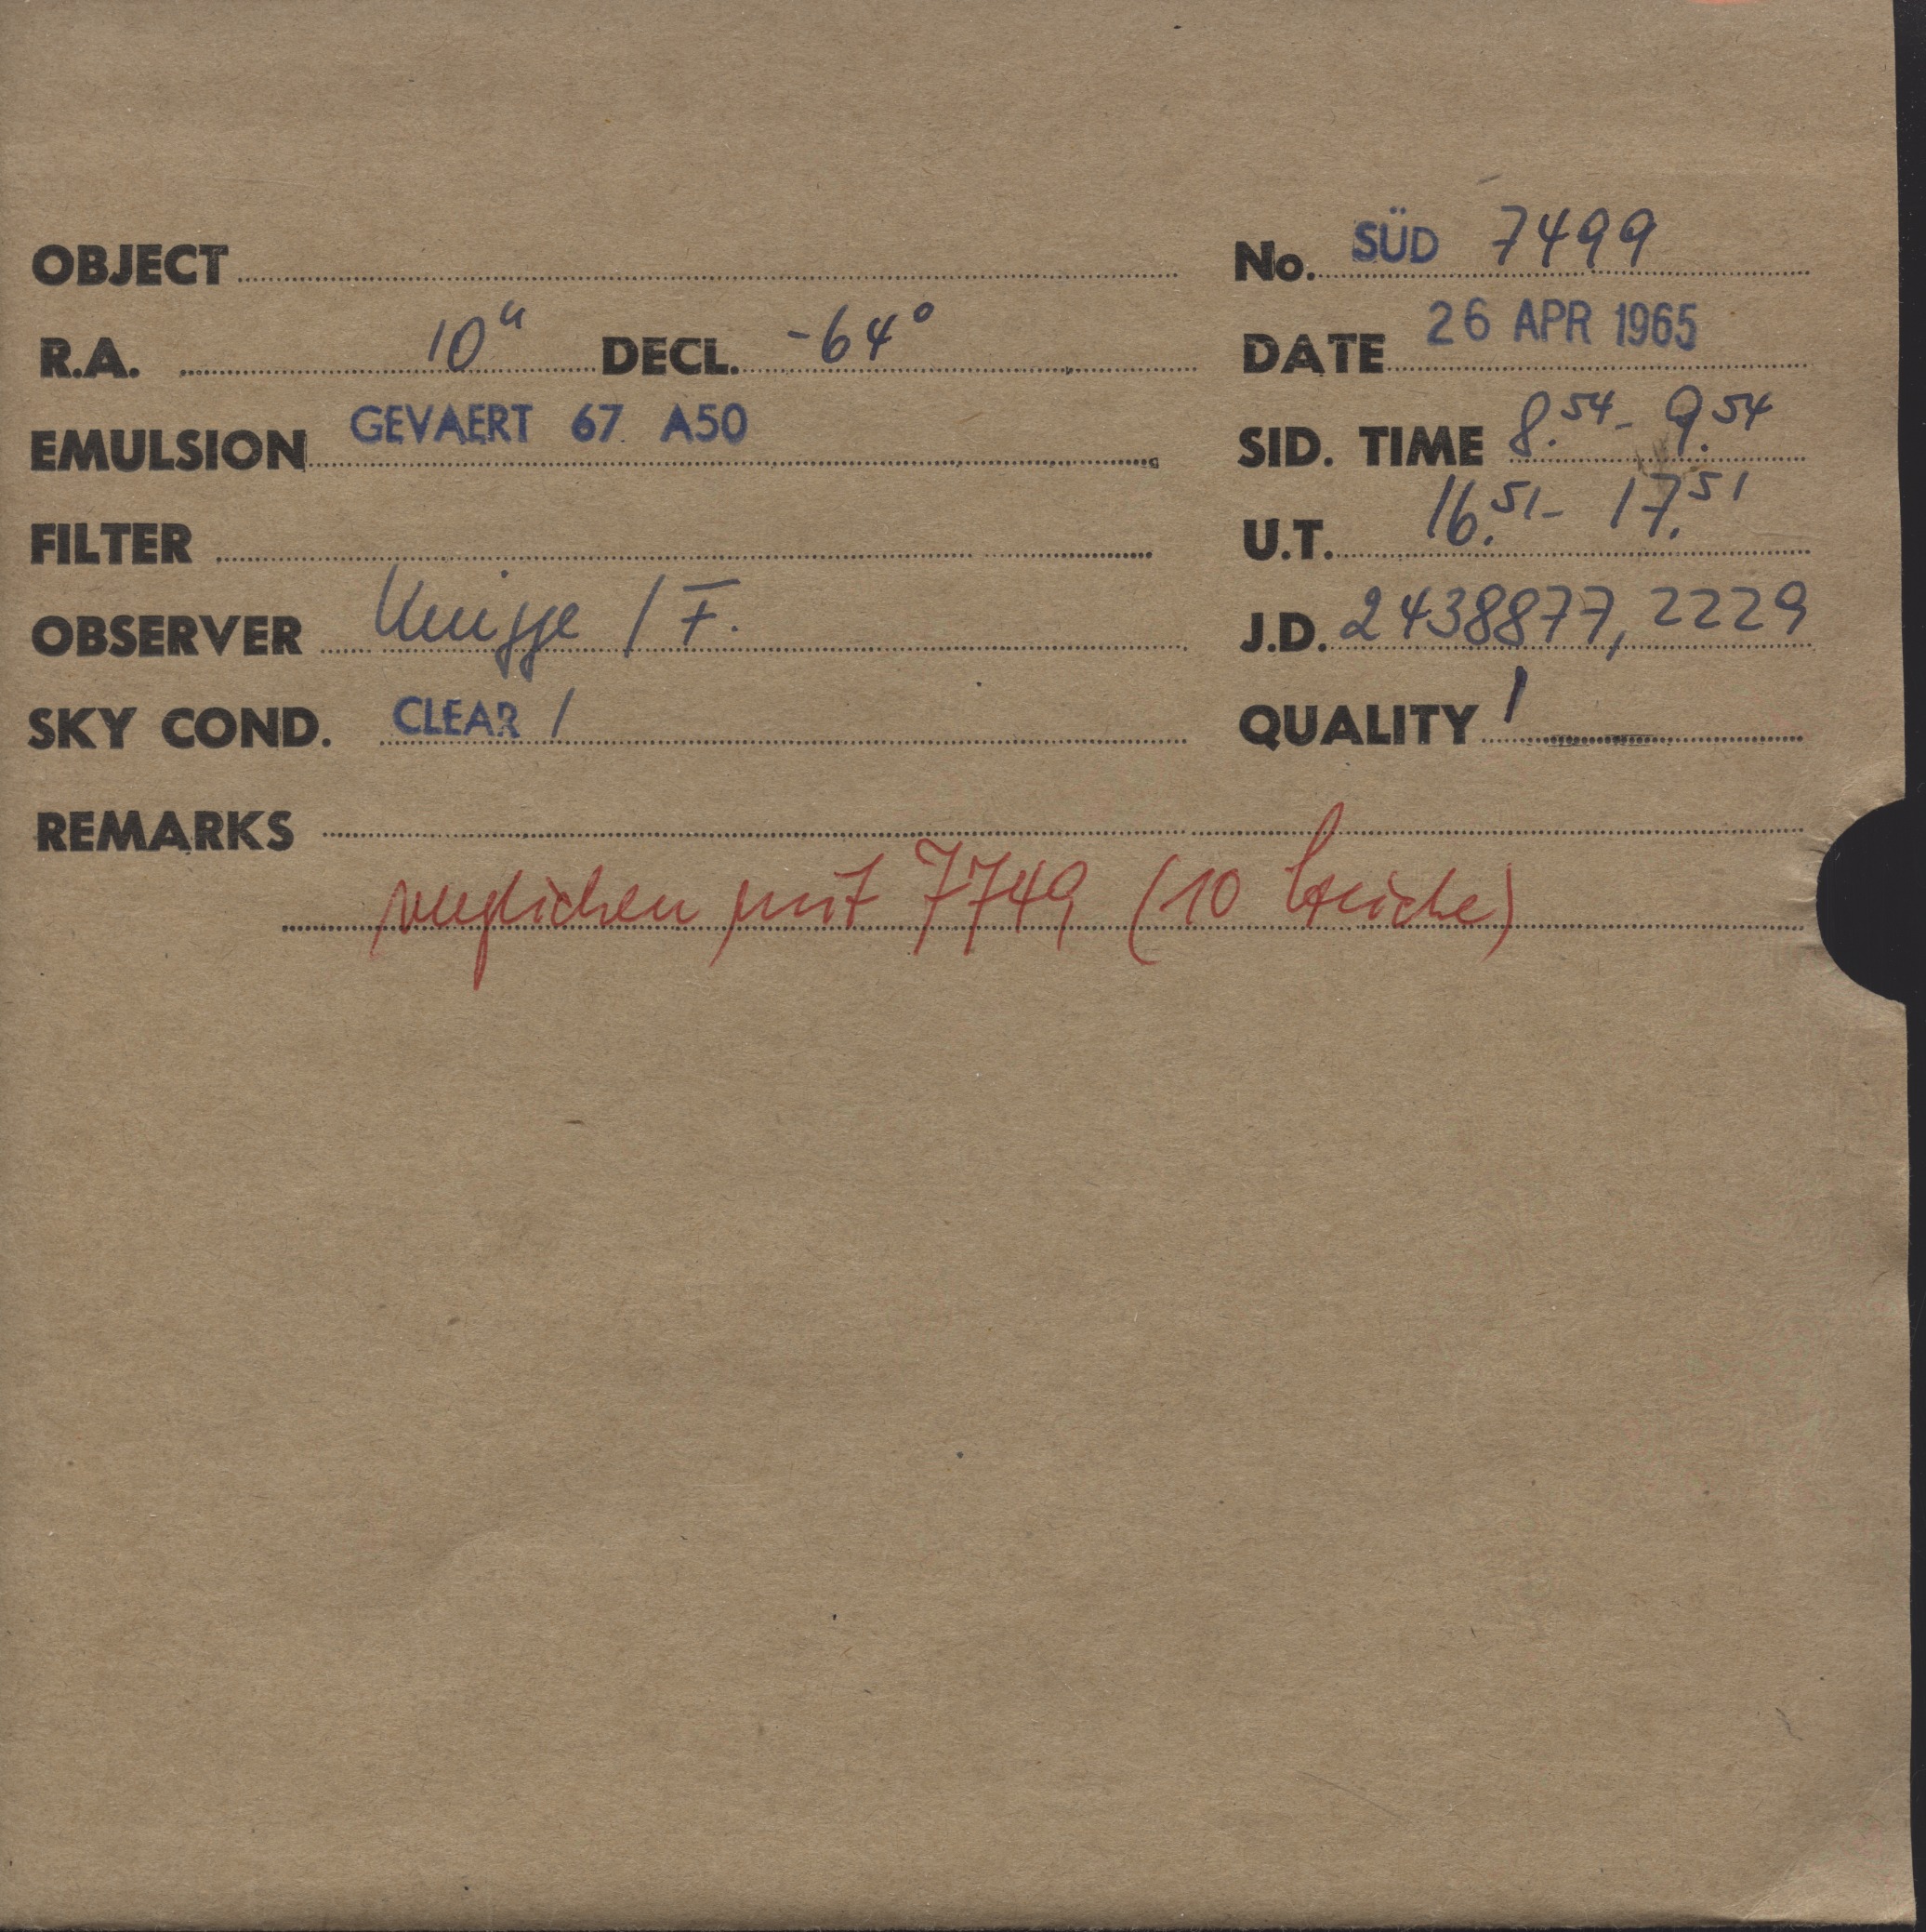 OBJECT
No. SÜD 7499
R.A. 10h DECL. -64°
DATE 26 APR 1965
EMULSION GEVAERT 67 A50
SID. TIME 8.54 - 9.54
FILTER
U.T. 16.51 - 17.51
OBSERVER Knigge / F.
J.D. 2438877,2229
SKY COND. CLEAR /
QUALITY 1
REMARKS
verglichen mit 7749 (10